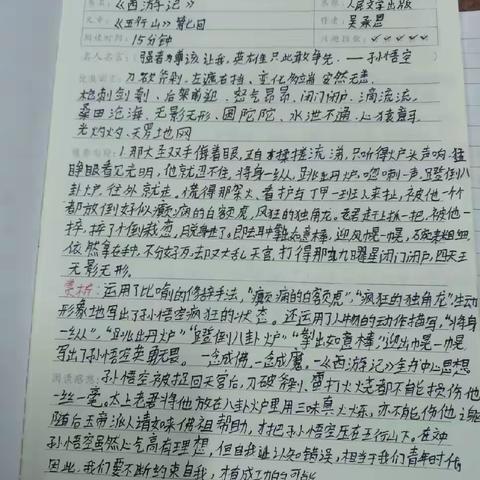 书名：《西游记》 出版：人民文学出版
文章：《五行山》第七回 作者：吴承恩
阅读时间：15分钟 阅读指数：✓✓✓✓✓
名人名言：强者为尊该让我，英雄只此敢争先。——孙悟空
优美词语：刀砍斧剁、左遮右挡、变化多端、安然无恙、
枪刺剑刳、后架前迎、怒气昂昂、闭门闭户、滴流流、
桑田沧海、无影无形、圆陀陀、水泄不通、心猿意马、
光灼灼、天罗地网
1.那大圣双手侮着眼，正自揉搓流涕，只听得炉头声响，猛
睁眼看见光明，他就忍不住，将身一纵，跳出丹炉，唿喇一声，蹬倒八
卦炉，往外就走。慌得那架火、看护与丁甲一班人来扯，被他一个个
都放倒，好似癫痫的白额虎，风狂的独角龙。老君赶上抓一把，被他一
捽，捽了个倒栽葱，脱身走了。即去耳中掣出如意棒，迎风幌一幌，碗来粗细，
依然拿在手中，不分好歹，却又大乱天宫，打得那九曜星闭门闭户，四天王
无影无形。
赏析：运用了比喻的修辞手法，“癫痫的白额虎”，“疯狂的独角龙”生动
形象地写出了孙悟空疯狂的状态。还运用了人物的动作描写，“将身
一纵”，“跳出丹炉”，“蹬倒八卦炉”，“掣出如意棒”，“迎风幌一幌”
写出了孙悟空英勇无畏。一念成佛，一念成魔。—《西游记》全书中心思想
阅读感悟：孙悟空被捉回天宫后，刀砍斧剁、雷打火烧都不能损伤他
一丝一毫。太上老君将他放在八卦炉里用三味真火炼，亦不能伤他
随后玉帝派人请如来佛祖帮助，才把孙悟空压在五行山下。在文中
孙悟空虽然心气高有理想，但自我认知错误，相当于我们青年时代
因此，我们要不断约束自我，才有成功的可能